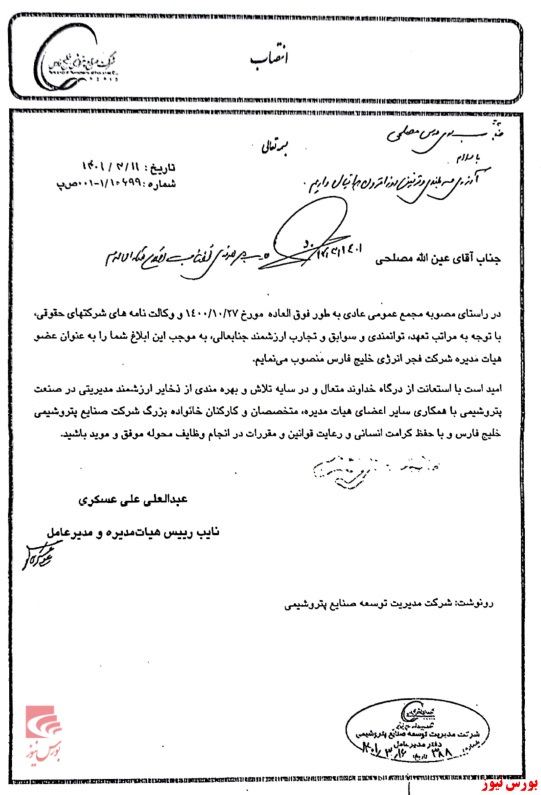 انتصاب
شرکت صنایع پتروشیمی خلیج فارس
بسمه تعالی
تاریخ: ۱۴۰۱/۳/۱۱
شماره: ۱/۱۰۶۹۹-۰۰۱ص‌پ
با سلام
جناب آقای عین الله مصلحی
در راستای مصوبه مجمع عمومی عادی به طور فوق العاده مورخ ۱۴۰۰/۱۰/۲۷ و وکالت نامه های شرکتهای حقوقی،
با توجه به مراتب تعهد، توانمندی و سوابق و تجارب ارزشمند جنابعالی، به موجب این ابلاغ شما را به عنوان عضو
هیات مدیره شرکت فجر انرژی خلیج فارس منصوب می‌نمایم.
امید است با استعانت از درگاه خداوند متعال و در سایه تلاش و بهره مندی از ذخایر ارزشمند مدیریتی در صنعت
پتروشیمی با همکاری سایر اعضای هیات مدیره، متخصصان و کارکنان خانواده بزرگ شرکت صنایع پتروشیمی
خلیج فارس و با حفظ کرامت انسانی و رعایت قوانین و مقررات در انجام وظایف محوله موفق و موید باشید.
عبدالعلی علی عسکری
نایب رییس هیات‌مدیره و مدیرعامل
رونوشت: شرکت مدیریت توسعه صنایع پتروشیمی
شرکت مدیریت توسعه صنایع پتروشیمی
دفتر مدیرعامل
بورس نیوز
بورس نیوز